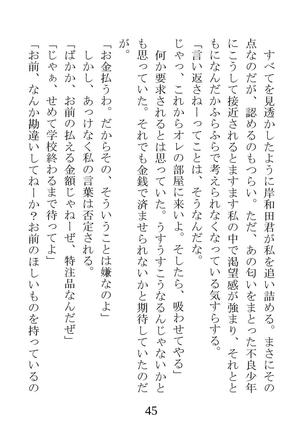 すべてを見透かしたように岸和田君が私を追い詰める。まさにその
点なのだが、認めるのもつらい。ただ、あの匂いをまとった不良少年
にこうして接近されるとますます私の中で渇望感が強まり、それとと
もになんだかふらふらで考えられなくなっている気すらする。
「言い返さねーってことは、そうなんだな。
じゃっ、これからオレの部屋に来いよ。そしたら、吸わせてやる」
　何か要求されるとは思っていた。うすうすこうなるんじゃないかと
も思っていた。それでも金銭で済ませられないかと期待していたのだ
が。
「お金払うわ。だからその、そういうことは嫌なのよ」
　しかし、あっけなく私の言葉は否定される。
「ばかか、お前の払える金額じゃねーぜ、特注品なんだぜ」
「じゃぁ、せめて学校終わるまで待ってよ」
「お前、なんか勘違いしてねーか？お前のほしいものを持っているの
45